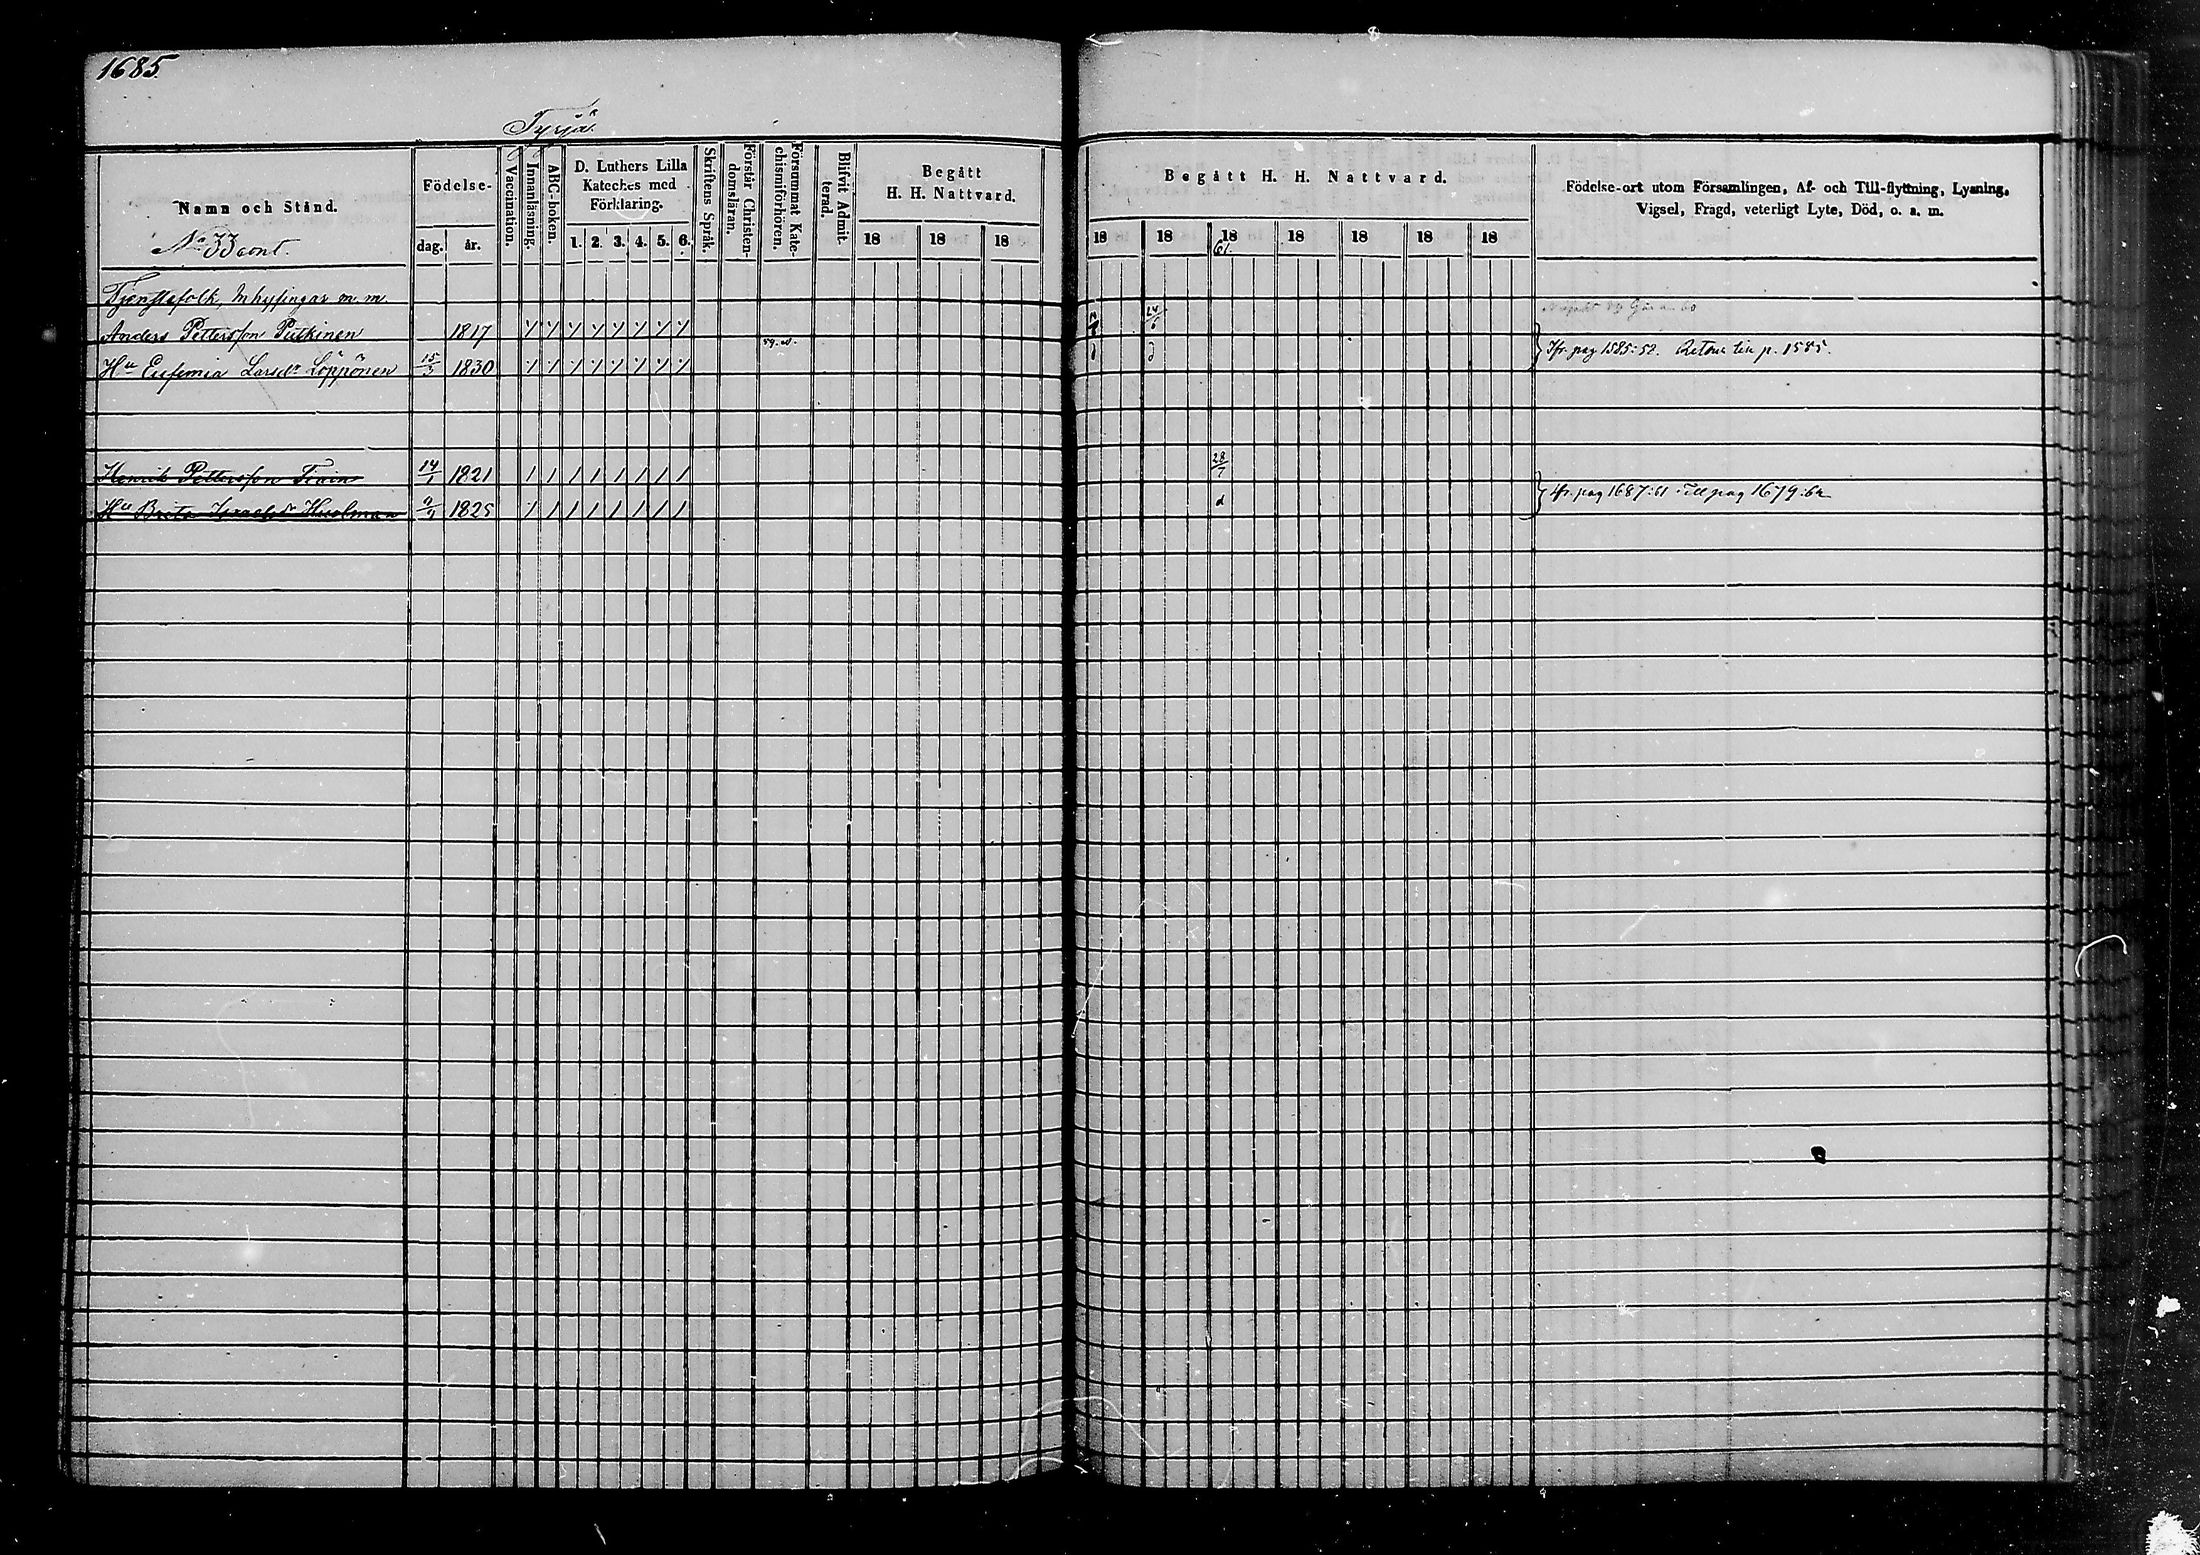 1685.
Tyrjä
Namn och Stånd.
Födelse-
dag. år.
Vaccination.
Innanläsning.
ABC-boken.
D. Luthers Lilla
Kateches med
Förklaring.
1. 2. 3. 4. 5. 6.
Skriftens Språk.
Förstår Christen-
domsläran.
Försummat Kate-
chismiförhören.
Blifvit Admit-
terad.
Begått
H. H. Nattvard.
18 18 18
Begått H. H. Nattvard.
18 18 1861. 18 18 18 18
Födelse-ort utom Församlingen, Af- och Till-flyttning, Lysning,
Vigsel, Fragd, veterligt Lyte, Död, o. a. m.
No 33 cont.
Tjenstefolk, Inhysingar m. m.
Anders Pettersson Putkinen 1817 24/6
59. Ifr. pag 1585:52. Retour till p. 1585.
Hu Eufemia Larsdr Löppönen 15/3 1830
Henrik Pettersson Tiain 14/1 1821 28/7
Ifr. pag 1687:61 Till pag 1679:62
Hu Brita Israelsdr Huolman 1825